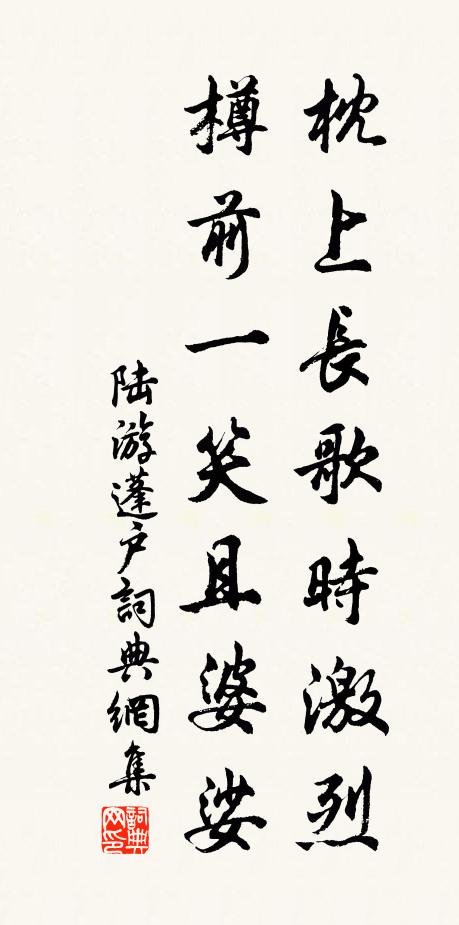 枕上長歌時激烈
樽前一笑且婆娑
陆游蓬户詞典網集
詞典网印